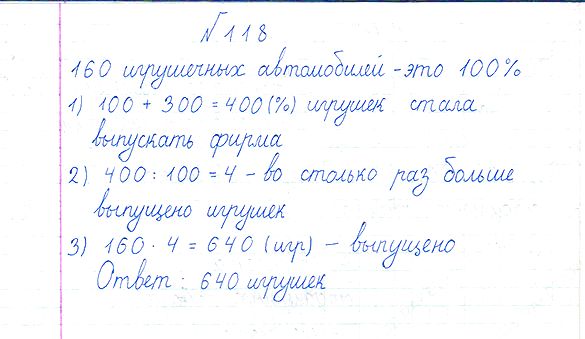 №118
160 игрушечных автомобилей - это 100%
1) 100 + 300 = 400 (%) игрушек стала
выпускать фирма
2) 400 : 100 = 4 - во столько раз больше
выпущено игрушек
3) 160 · 4 = 640 (игр) - выпущено
Ответ : 640 игрушек